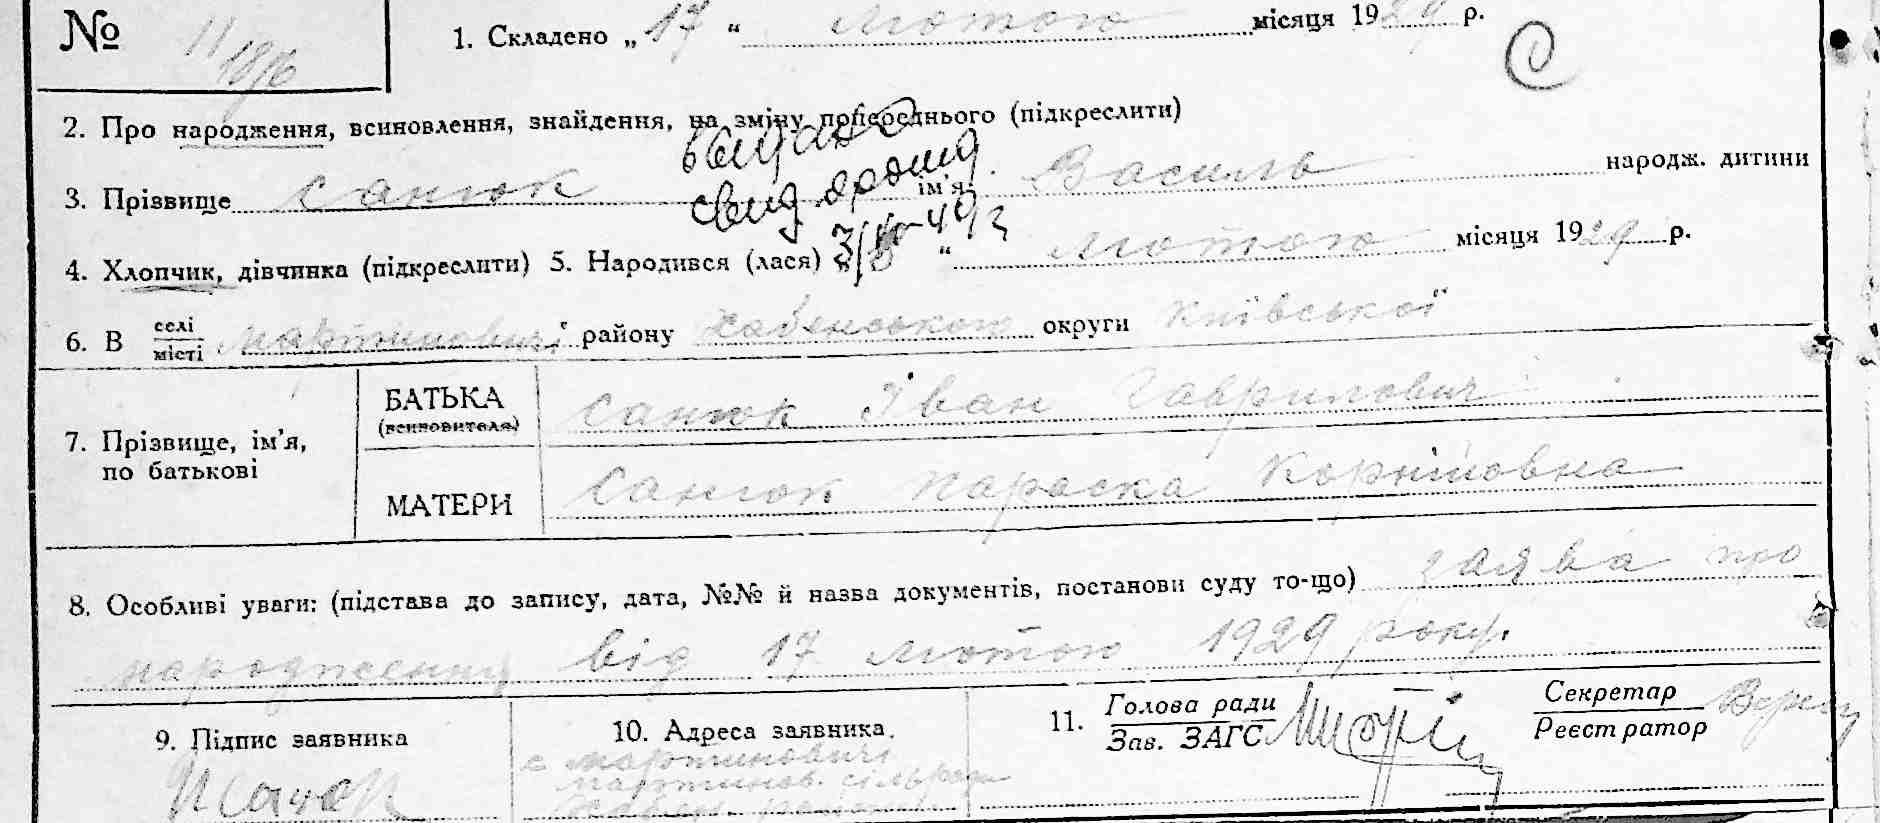 № 11
1. Складено „17“ лютого місяця 1929 р.
2. Про народження, всиновлення, знайдення, на зміну попереднього (підкреслити)
выдано
свид. о рожд.
3. Прізвище Санюк ім'я Василь народж. дитини
4. Хлопчик, дівчинка (підкреслити) 5. Народився (лася) „ “ лютого місяця 1929 р.
6. В селі/місті Мартиновичі району Хабенського округи Київської
7. Прізвище, ім'я, по батькові
БАТЬКА (всиновителя) Санюк Іван Гаврилович
МАТЕРИ Санюк Параска Корніовна
8. Особливі уваги: (підстава до запису, дата, №№ й назва документів, постанови суду то-що) заява про
народження від 17 лютого 1929 року.
9. Підпис заявника
10. Адреса заявника
с Мартиновичі
Мартинов. сільради
11. Голова ради
Зав. ЗАГС
Секретар
Реєстратор